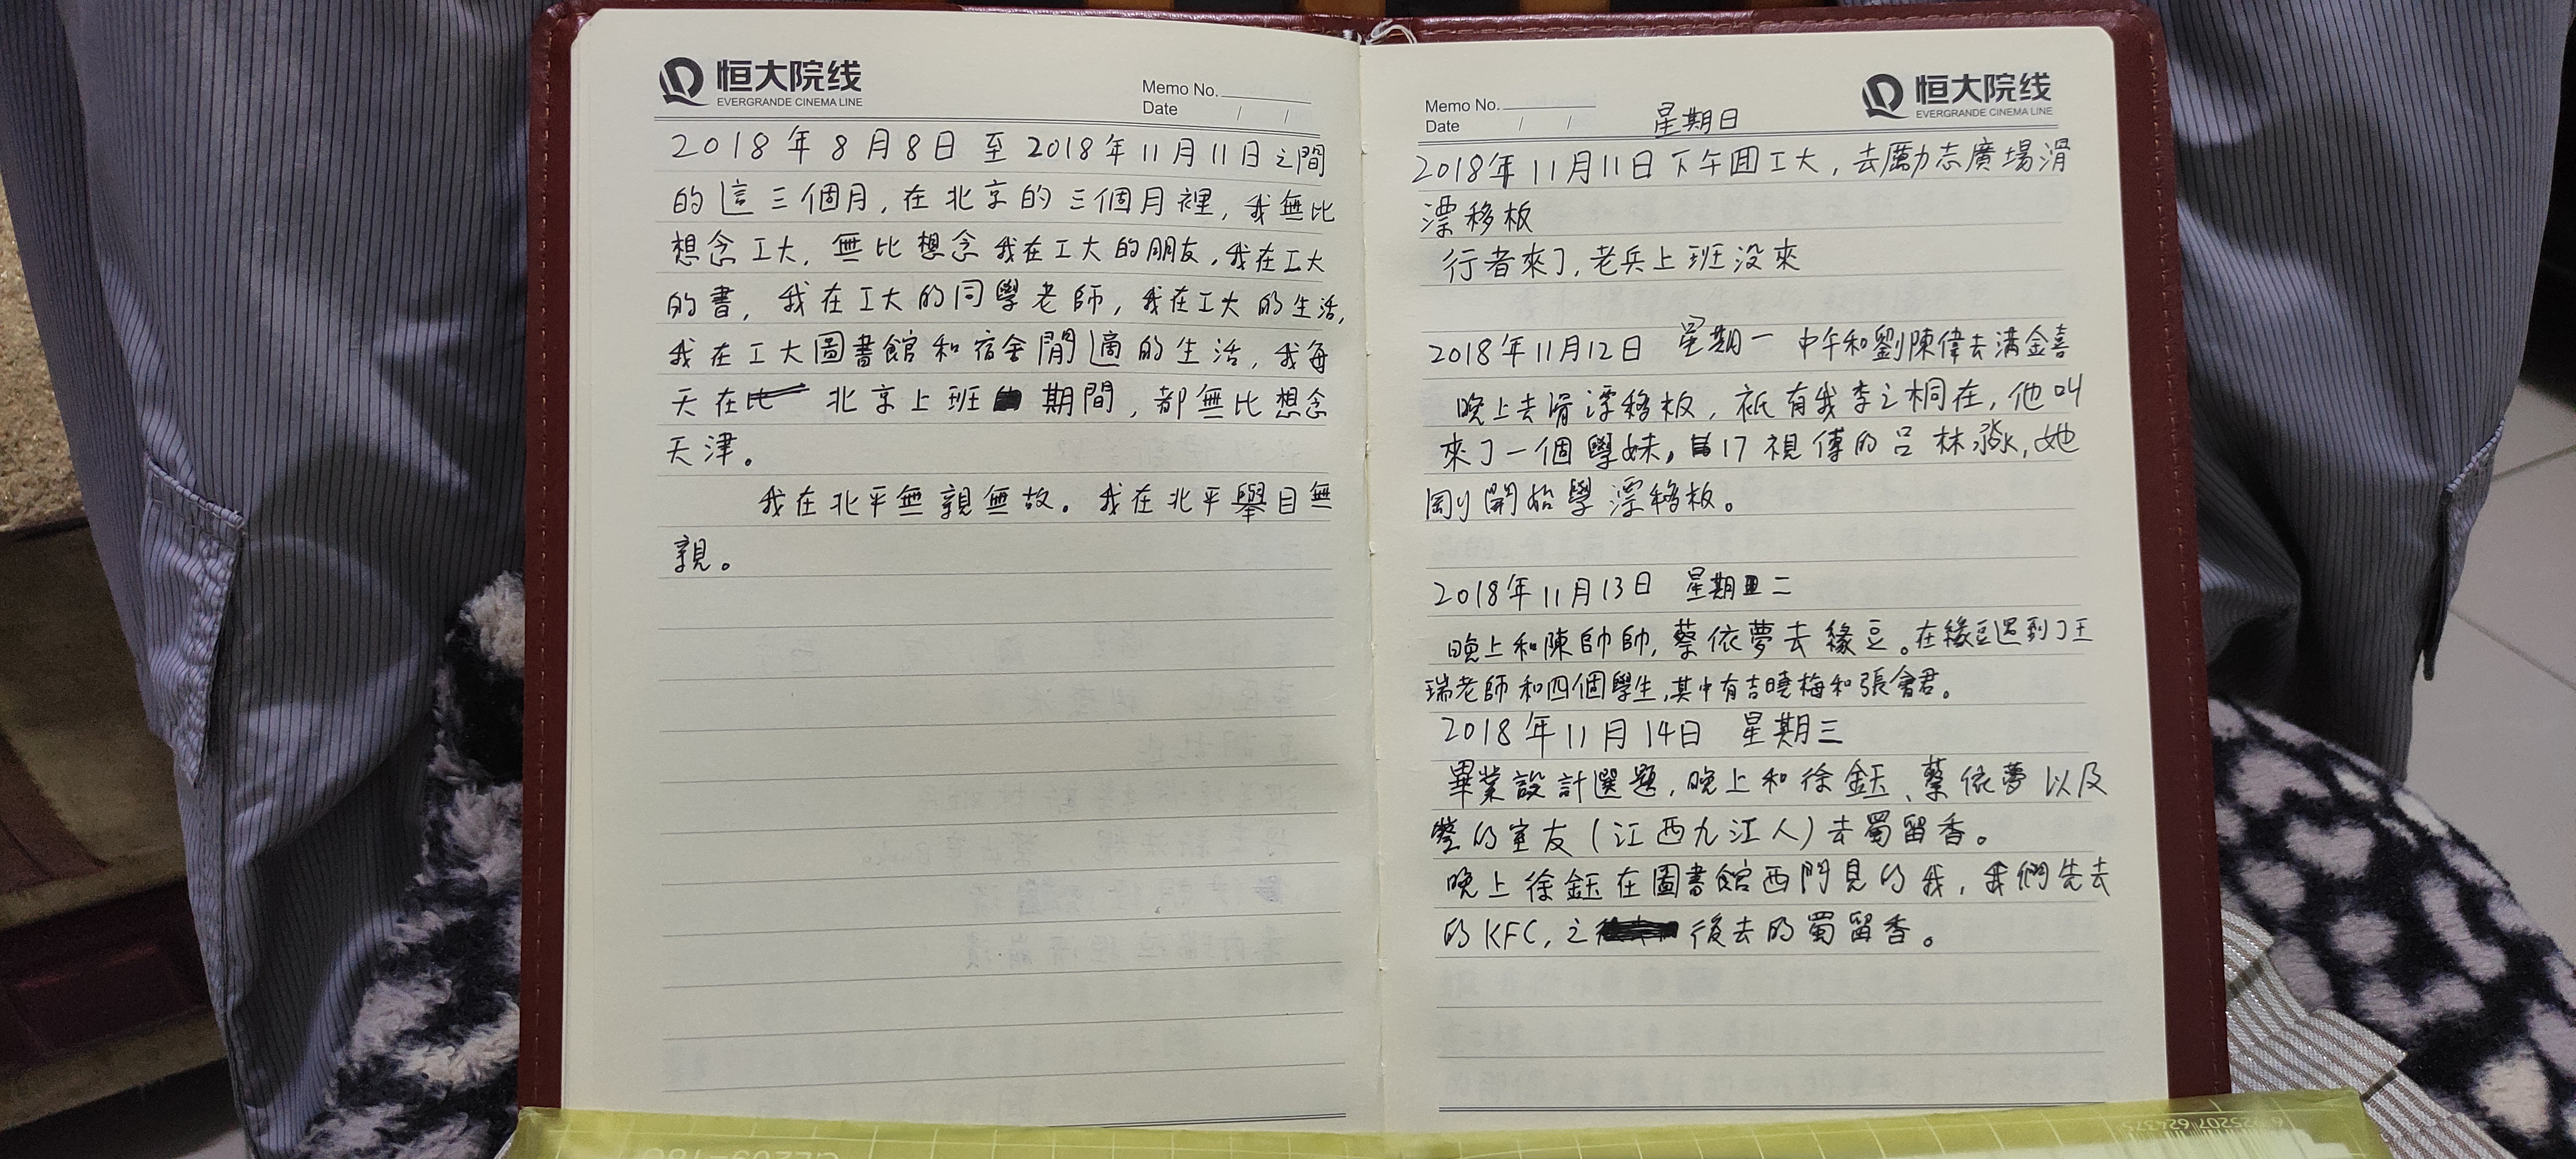 恒大院线
EVERGRANDE CINEMA LINE
Memo No.
Date / /
2018年8月8日至2018年11月11日之間
的這三個月,在北京的三個月裡,我無比
想念工大,無比想念我在工大的朋友,我在工大
的書,我在工大的同學老師,我在工大的生活,
我在工大圖書館和宿舍閒適的生活,我每
天在 北京上班 期間,都無比想念
天津。
我在北平無親無故。我在北平舉目無
親。
Memo No.
Date / /
星期日
恒大院线
EVERGRANDE CINEMA LINE
2018年11月11日下午回工大,去勵志廣場滑
漂移板
行者來了,老兵上班没來
2018年11月12日 星期一 中午和劉陳偉去滿金喜
晚上去滑漂移板,衹有我李之桐在,他叫
來了一個學妹, 17視傳的呂林淼,她
剛開始學漂移板。
2018年11月13日 星期二
晚上和陳帥帥,蔡依夢去緣豆。在緣豆遇到了王
瑞老師和四個學生,其中有吉曉梅和張會君。
2018年11月14日 星期三
畢業設計選題,晚上和徐鈺、蔡依夢以及
的室友(江西九江人)去蜀留香。
晚上徐鈺在圖書館西門見的我,我們先去
的KFC,之 後去的蜀留香。